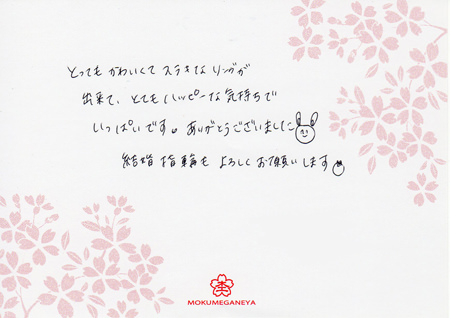 とってもかわいくてステキなリングが
出来て、とてもハッピーな気持ちで
いっぱいです。ありがとうございました
結婚指輪もよろしくお願いします
杢
MOKUMEGANEYA